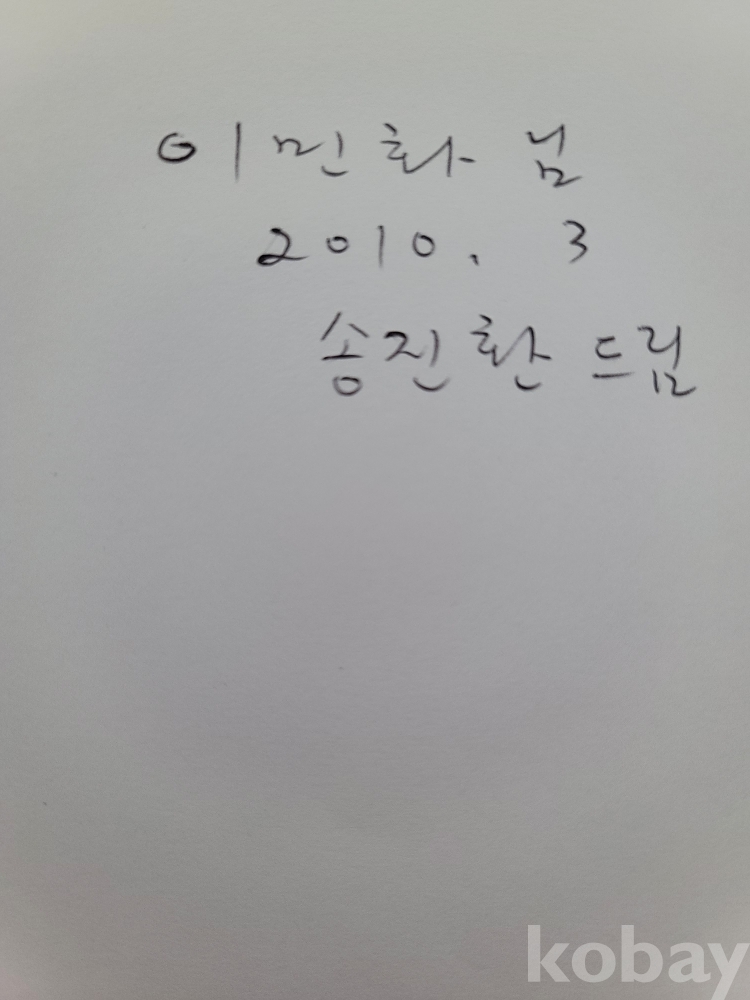 이민화 님
2010. 3
송진환 드림
kobay